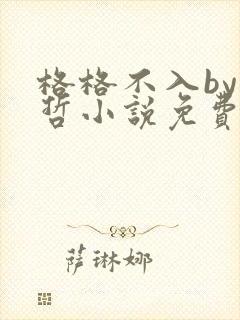 格格不入by
哲小說免費
萨琳娜